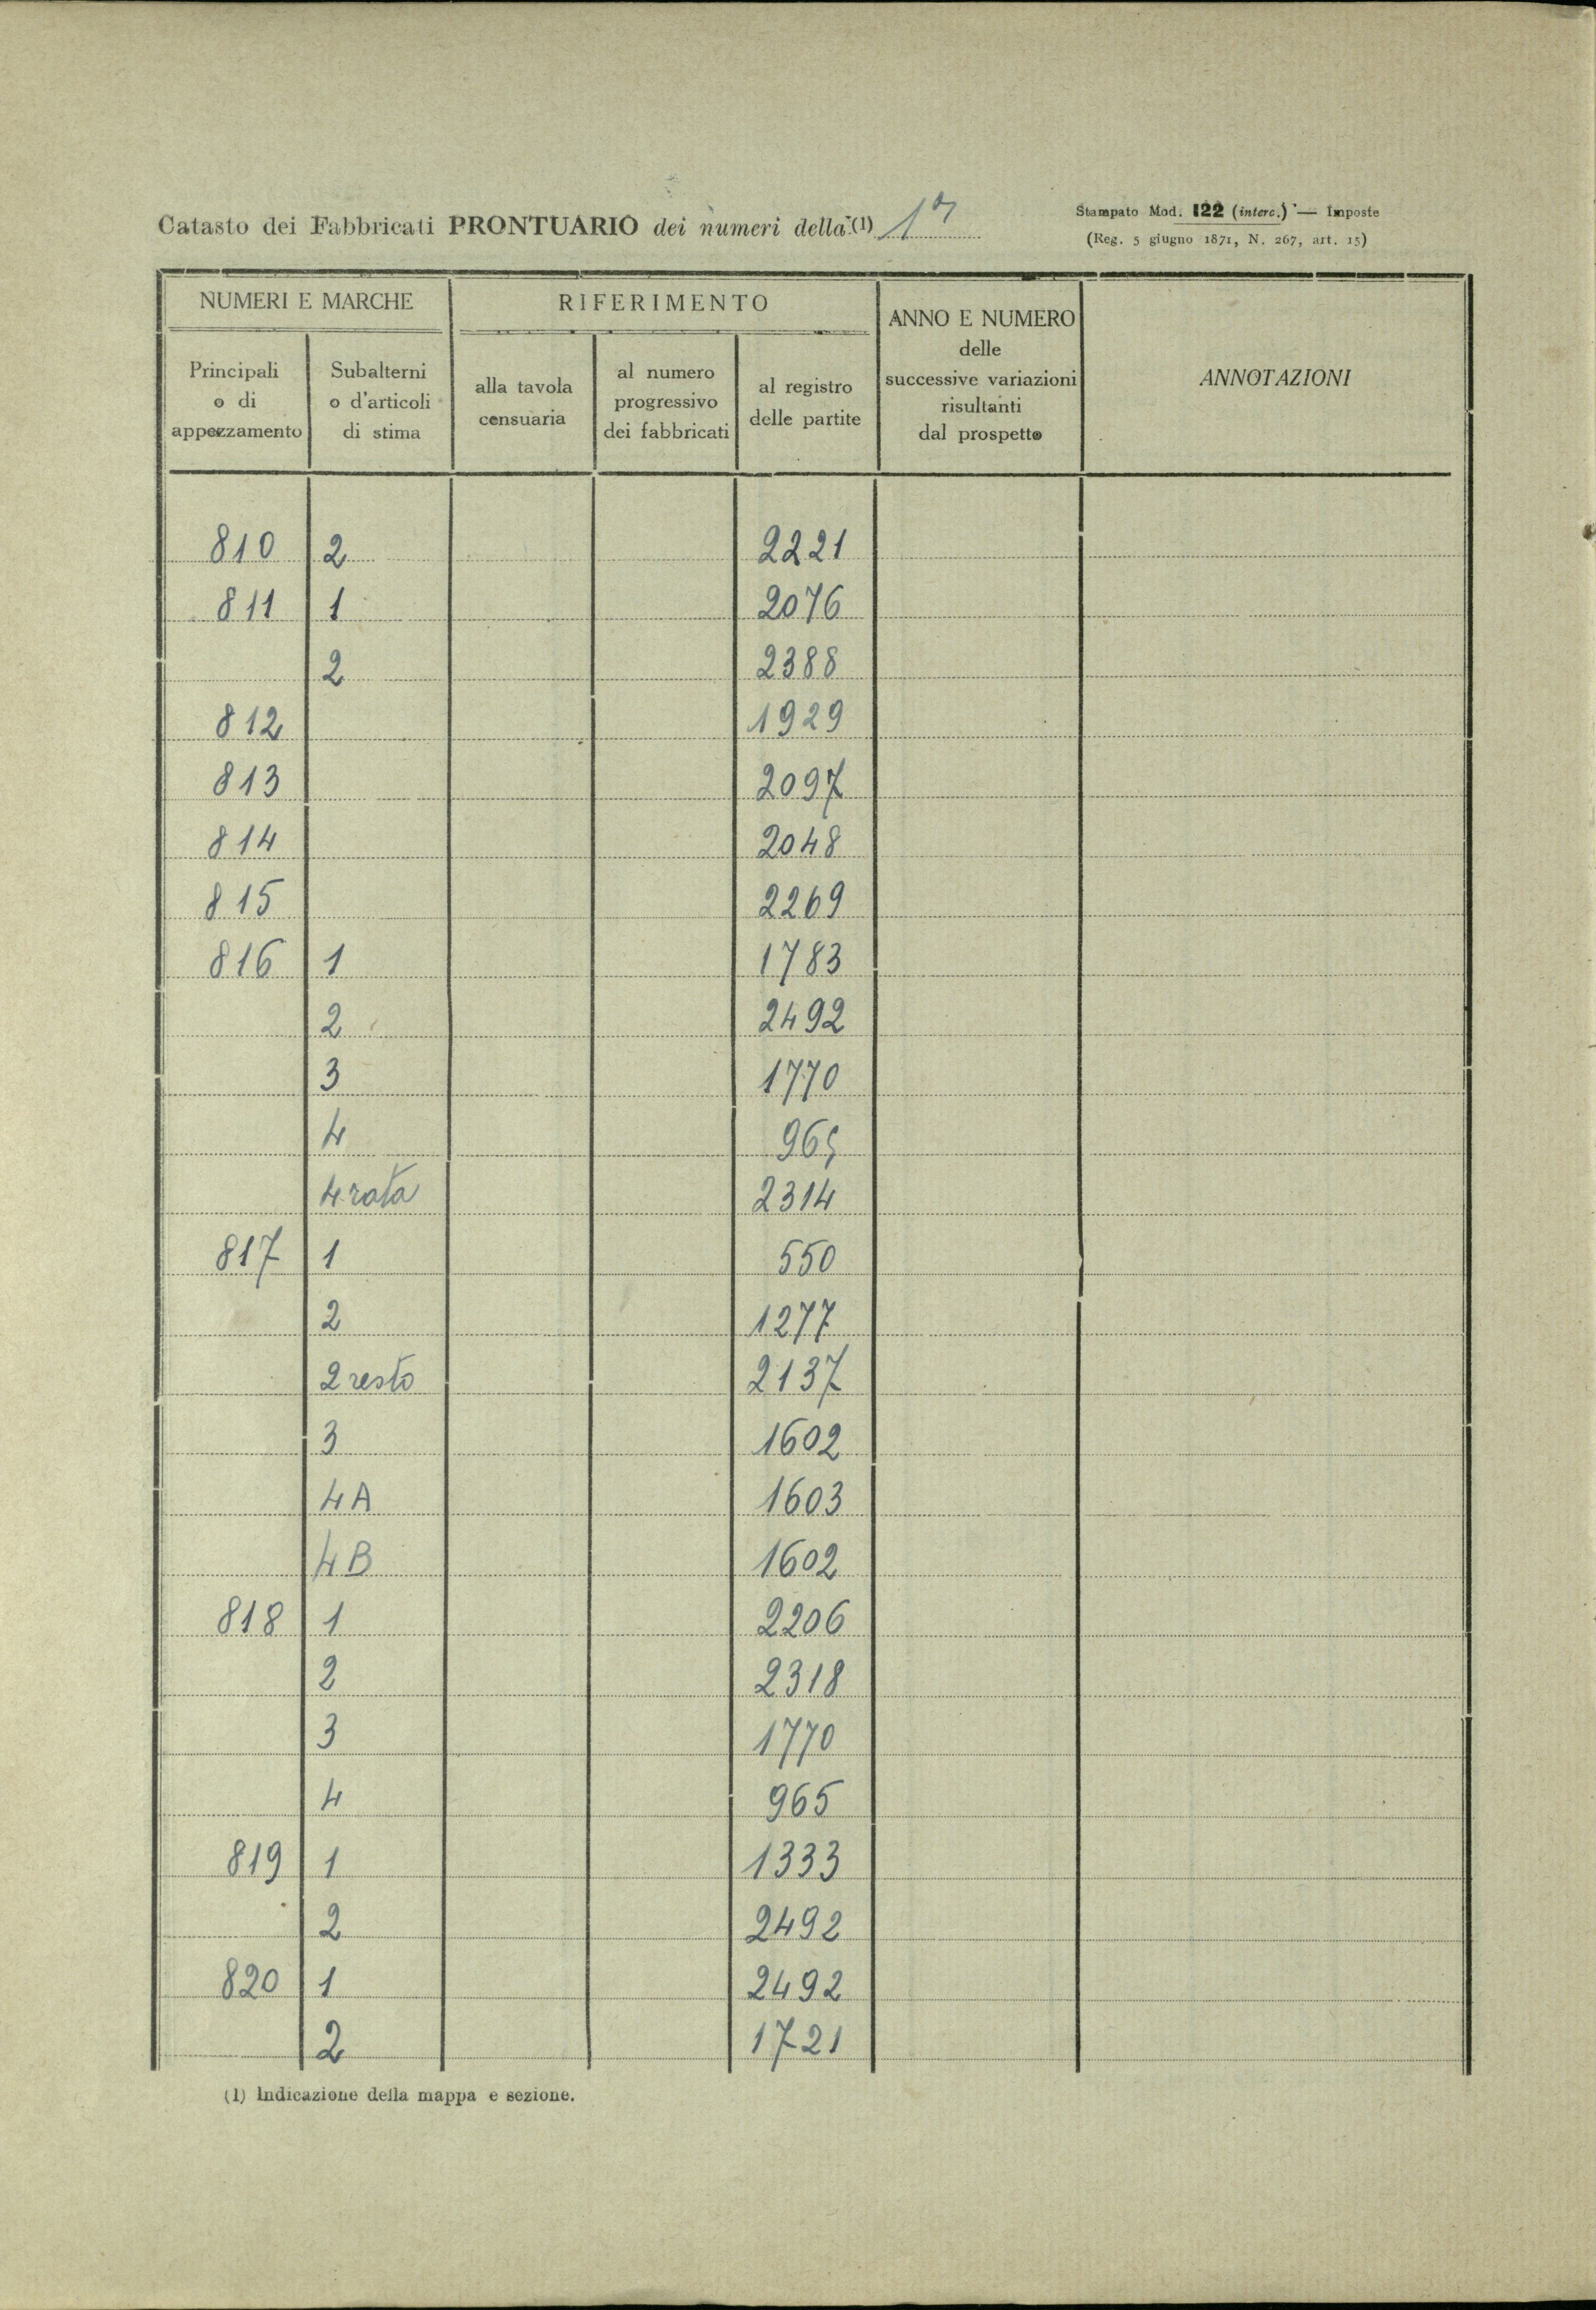 Catasto dei Fabbricati PRONTUARIO dei numeri della (1) 1ª
Stampato Mod. 122 (interc.) — Imposte
(Reg. 5 giugno 1871, N. 267, art. 15)
NUMERI E MARCHE
RIFERIMENTO
ANNO E NUMERO
delle
successive variazioni
risultanti
dal prospetto
ANNOTAZIONI
Principali
o di
appezzamento
Subalterni
o d'articoli
di stima
alla tavola
censuaria
al numero
progressivo
dei fabbricati
al registro
delle partite
810 2 2221
811 1 2076
2 2388
812 1929
813 2097
814 2048
815 2269
816 1 1783
2 2492
3 1770
4 965
4 rata 2314
817 1 550
2 1277
2 resto 2137
3 1602
4A 1603
4B 1602
818 1 2206
2 2318
3 1770
4 965
819 1 1333
2 2492
820 1 2492
2 1721
(1) Indicazione della mappa e sezione.